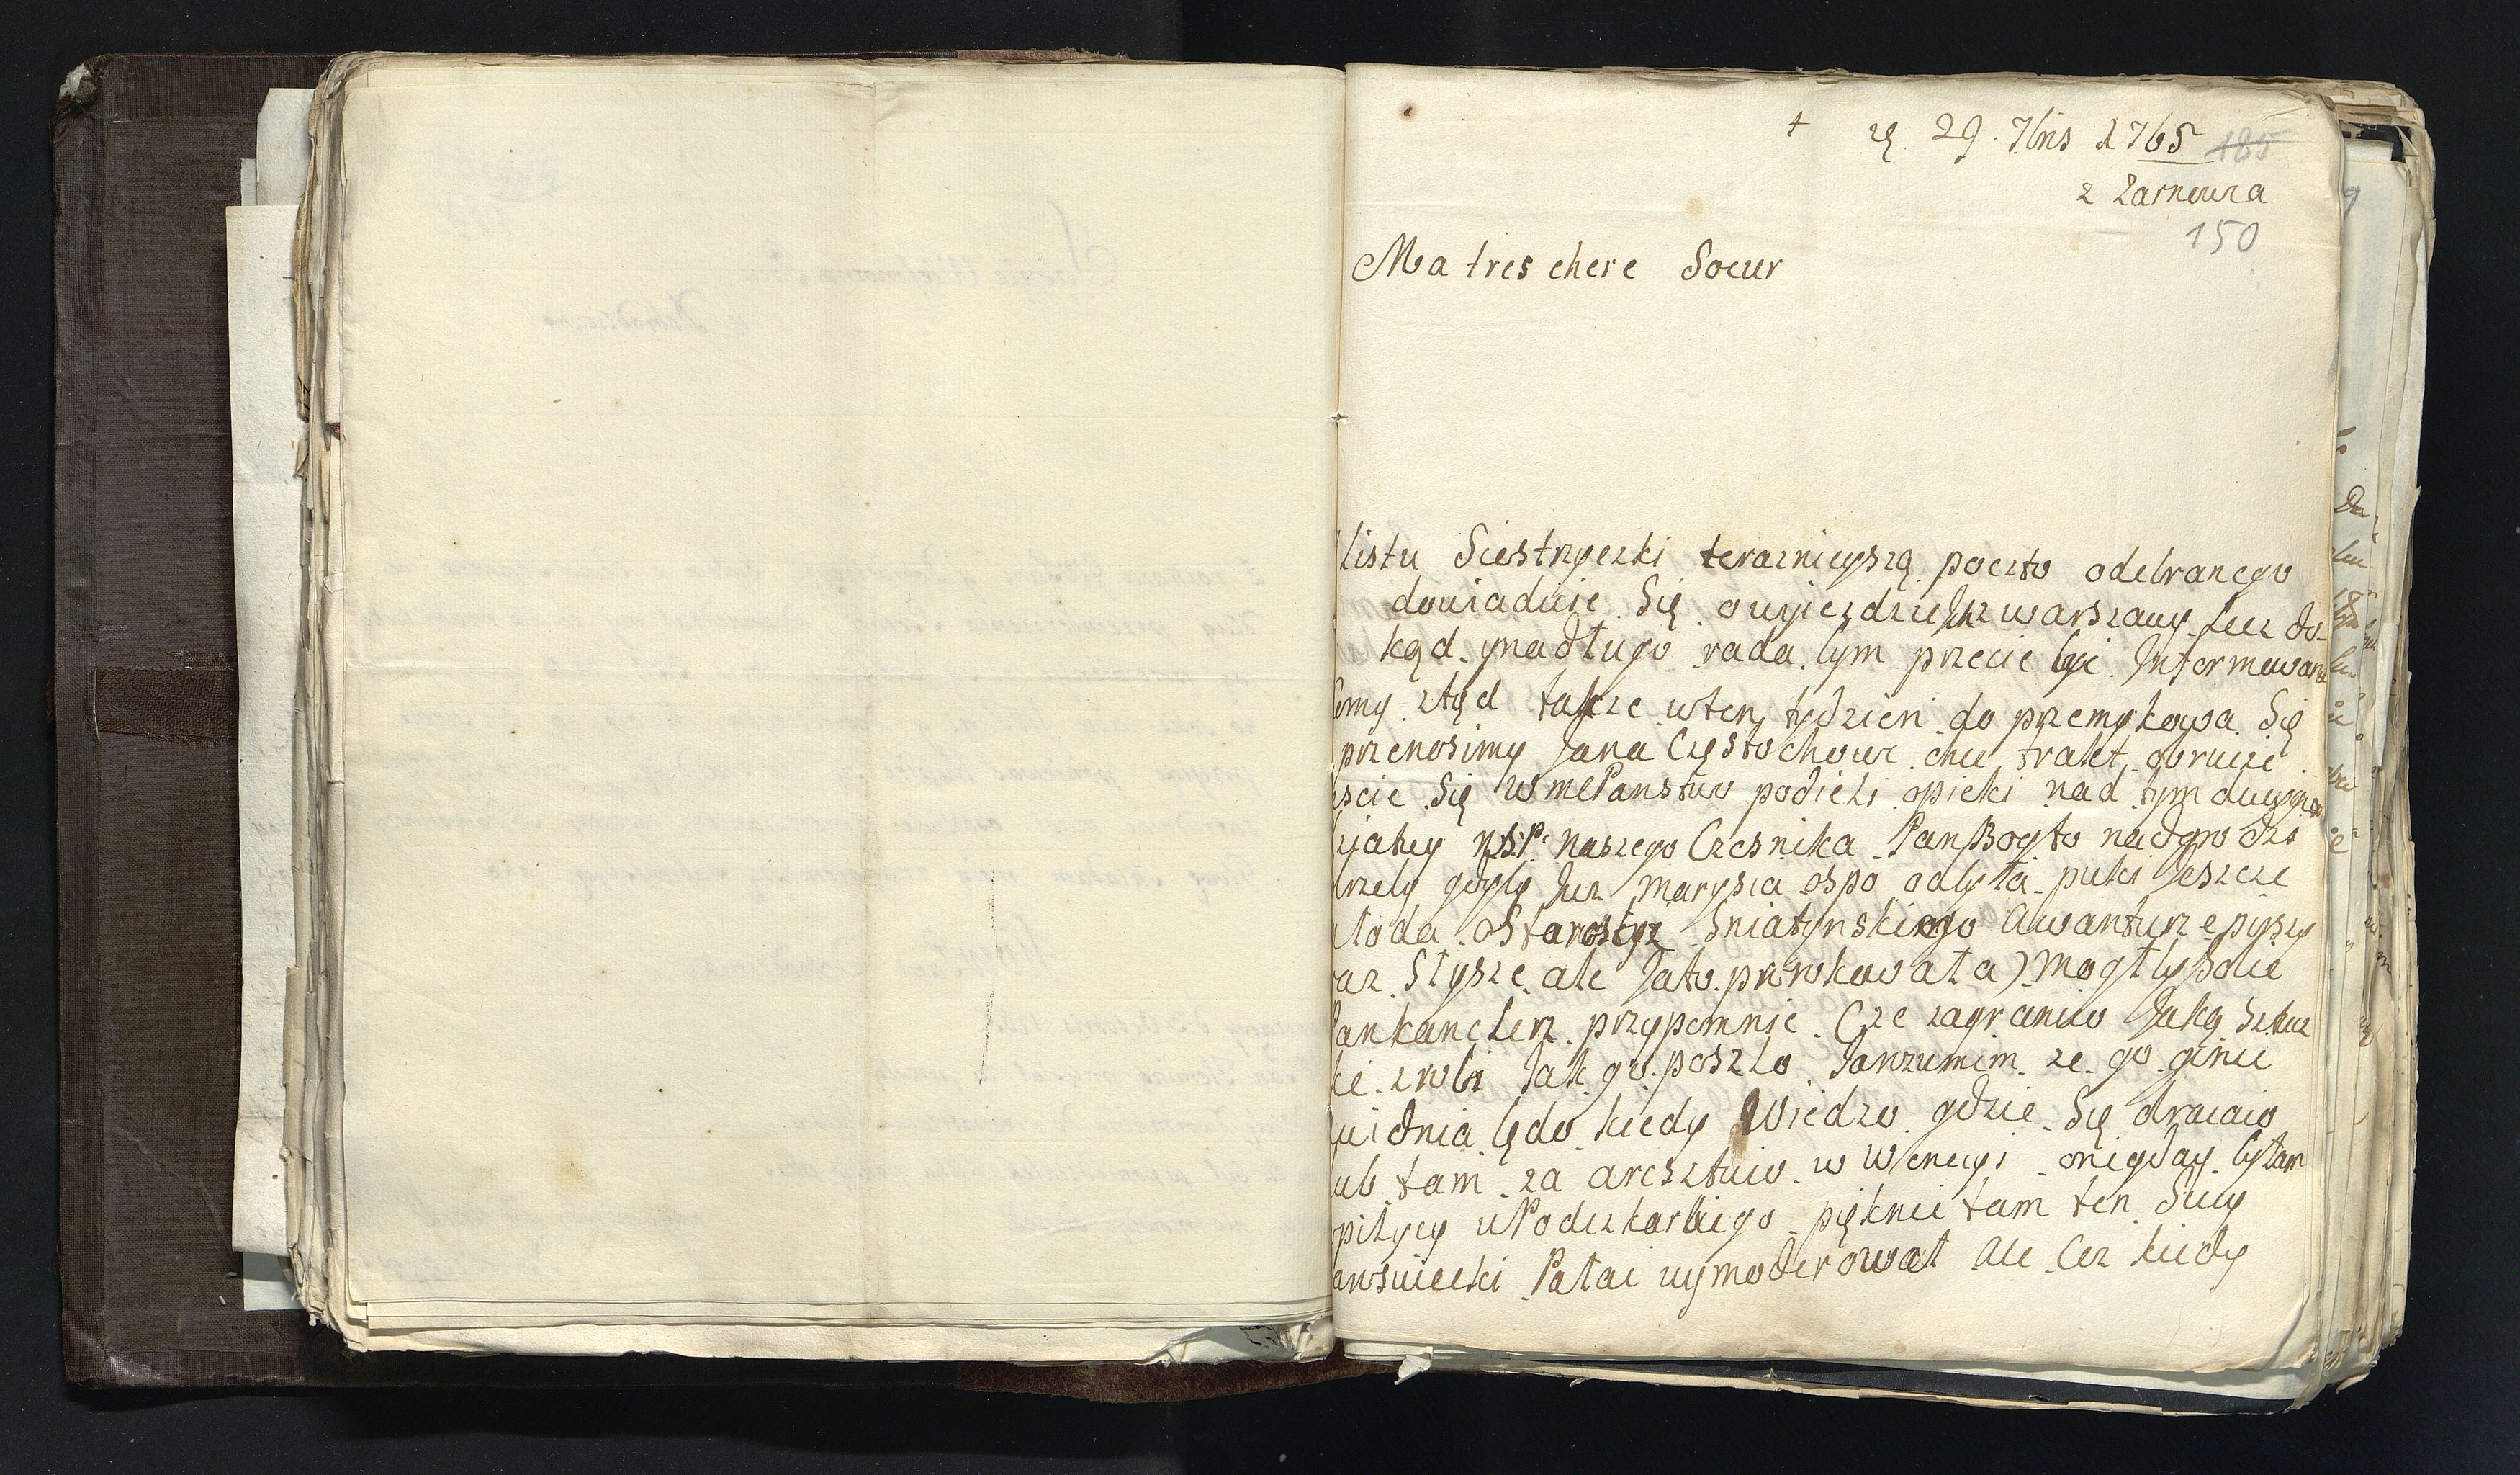 + 29. 7bris 1765 185
z Zarnowca
150
Ma tres chere Soeur
Listu Siestrzyczki teraznieyszą poczto odebranego
dowiaduie Się o wyiezdzie Ich z warszawy Lecz do-
kąd y na długo rada bym przecie być Informowana
my ztąd takze w ten tydzien do przemykowa Się
przenosimy Ja na Częstochowe chce trakt obrucic
scie Się WmcPanstwo podieli opieki nad tym
naszego Czesnika Pan Bog to nadgrodzi
gdyby Juz Marysia ospo odbyła puki Jeszcze
młoda o Staroscie Sniatynskiego Awanturze pirszy
raz Słysze ale Ja to prorokowała) mogłby Solie
Pan kanclerz przypomnic Cze zagranico Jaką Sztucz
ke zrobi Jak go poszlo Ja rozumim ze go gonic
dnia będo kiedy Wiedzo gdzie Się obracaio
lub tam za aresztuio w Wenecyi onegday byłam
u Podczkarbiego pięknie tam ten Suny
Pałac wymoderował ale Cez kiedy